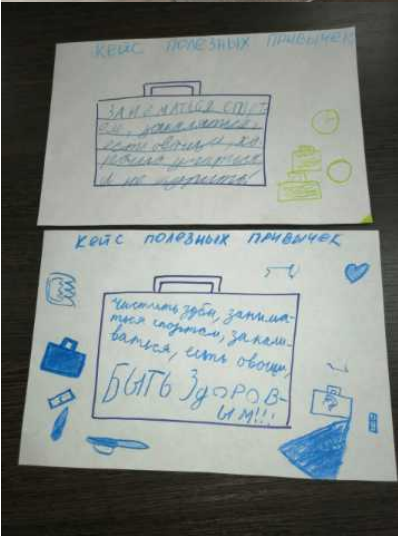 КЕЙС ПОЛЕЗНЫХ ПРИВЫЧЕК
ЗАНИМАТЬСЯ СПОРТ
ом, закаляться,
есть овощи, хо
рошо учиться
и не курить!
КЕЙС ПОЛЕЗНЫХ ПРИВЫЧЕК
Чистить зубы, занима-
ться спортом, закали-
ваться, есть овощи,
БЫТЬ ЗдОРОВ-
ЫМ!!!